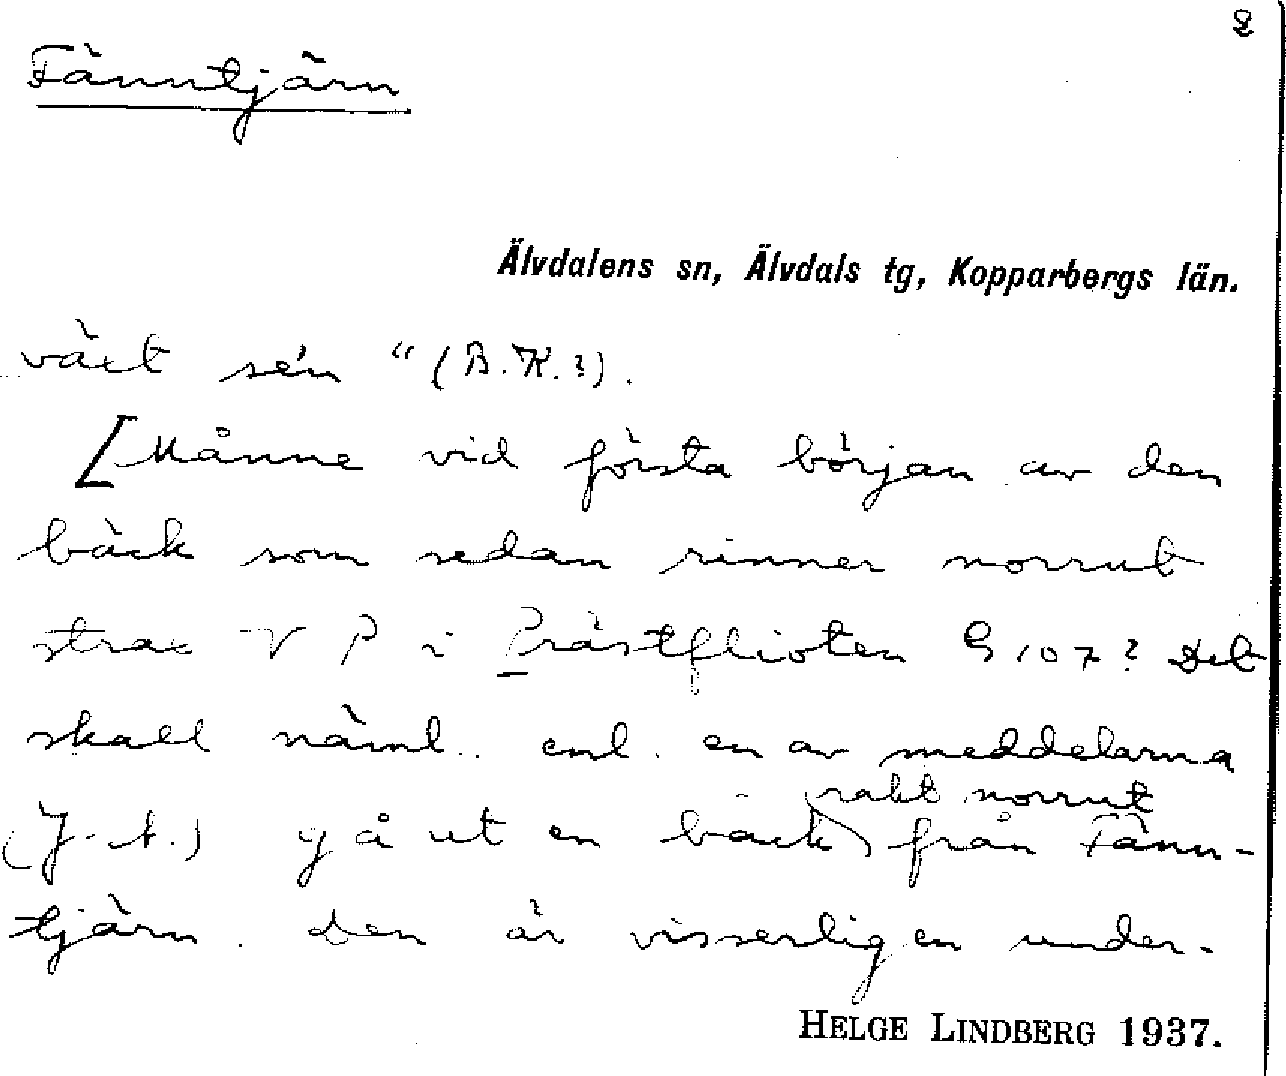 2
Fänntjärn
Älvdalens sn, Älvdals tg, Kopparbergs län.
växt sén " (B.K.?).
[Månne vid första början av den
bäck som sedan rinner norrut
strax V P i Prästflioten G 107? Det
skall näml. enl. en av meddelarna
rakt norrut
(J. A.) gå ut en bäck från Fänn-
tjärn. Den är visserligen under-
HELGE LINDBERG 1937.